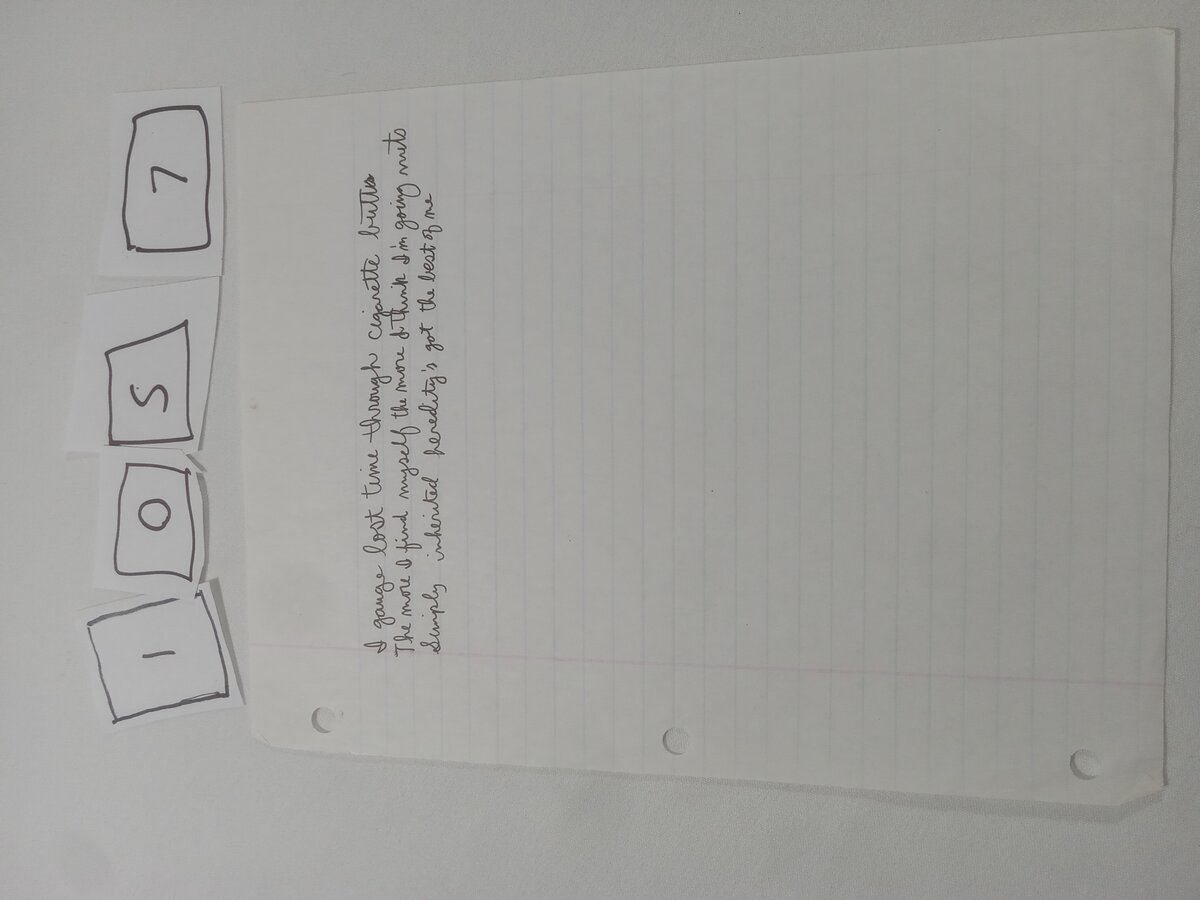 1 0 5 7
I gauge lost time through cigarette butts
The more I find myself the more I think I'm going nuts
Simply inherited heredity's got the best of me